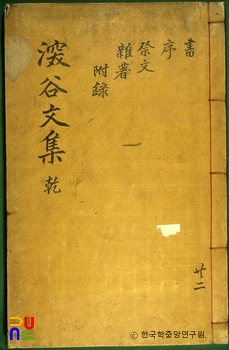 書
序
祭文
雜著
附錄
一
谷文集 乾
共二
© 한국학중앙연구원